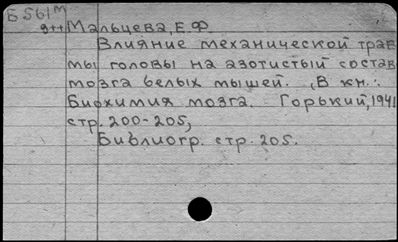 Б561м
g++ Мальцева, Е.Ф.
Влияние механической трав
мы головы на азотистый состав
мозга белых мышей. , В кн.:
Биохимия мозга. Горький, 1941
стр. 200-205,
Библиогр. стр. 205.